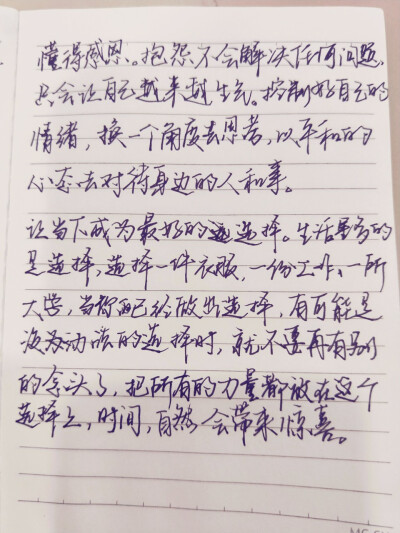 懂得感恩。抱怨不会解决任何问题,
只会让自己越来越生气。控制好自己的
情绪,换一个角度去思考,以平和的
心态去对待身边的人和事。
让当下成为最好的选择。生活里多的
是选择,选择一件衣服,一份工作,一所
大学,当你已经做出选择,有可能是
没有动摇的选择时,就不要再有别
的念头了,把所有的力量都放在这个
选择上,时间,自然会带来惊喜。